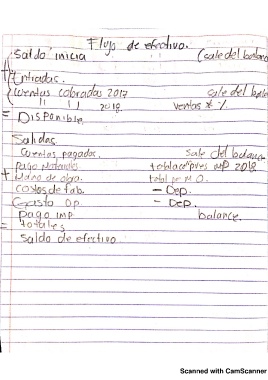 Flujo de efectivo.
Saldo inicia (sale del balance
+ Entradas.
Cuentas cobradas 2017 sale del balan
11 11 2018 ventas * %
= Disponible
Salidas
Cuentas pagadas. sale del balance
Pago Materiales total compras MP 2018
+ Mano de obra. total de M.O.
Costos de fab. - Dep.
Gasto Op - Dep.
Pago IMP balance.
= totales
Saldo de efectivo
Scanned with CamScanner